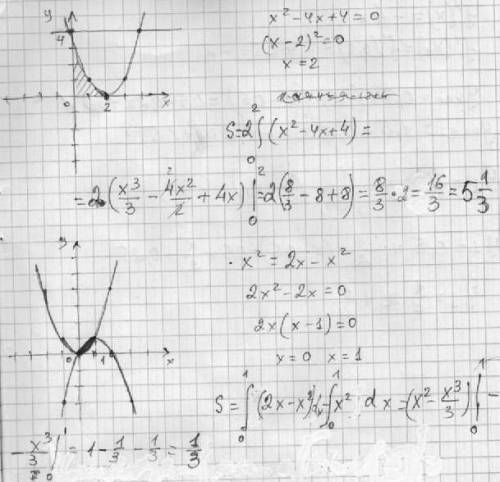 y
4
0
2
x
x² - 4x + 4 = 0
(x - 2)² = 0
x = 2
S = 2 ∫₀² (x² - 4x + 4) =
= 2 (x³/3 - 4x²/2 + 4x) |₀² = 2(8/3 - 8 + 8) = 8/3 · 2 = 16/3 = 5 1/3
y
0
1
x
· x² = 2x - x²
2x² - 2x = 0
2x(x - 1) = 0
x = 0 x = 1
S = ∫₀¹ (2x - x²)dx - ∫₀¹ x² dx = (x² - x³/3) |₀¹ -
- x³/3 |₀¹ = 1 - 1/3 - 1/3 = 1/3